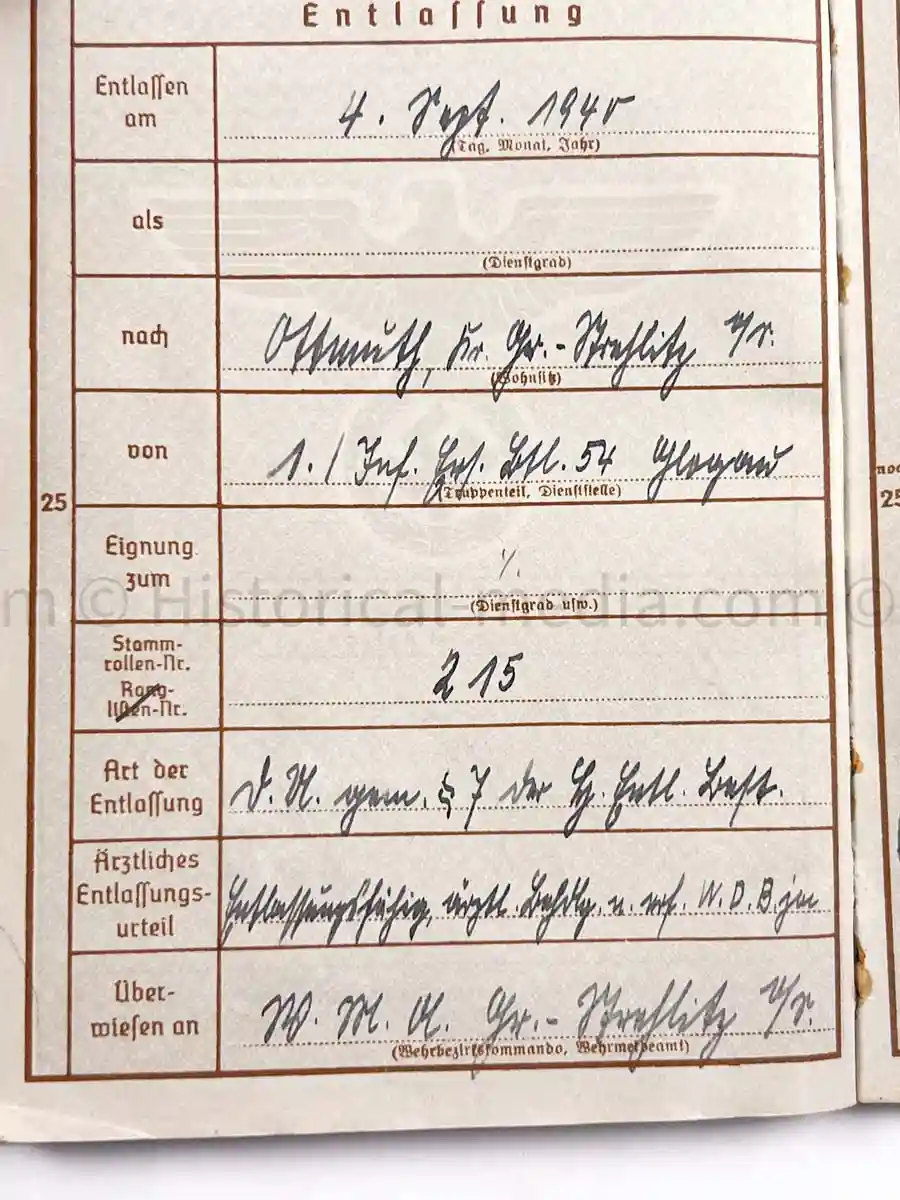 Entlassung
Entlassen am
4. Sept. 1940
(Tag, Monat, Jahr)
als
(Dienstgrad)
nach
Ottmuth, Kr. Gr.-Strehlitz O/S.
(Wohnsitz)
von
1. / Inf. Ers. Btl. 54 Glogau
(Truppenteil, Dienststelle)
25
Eignung zum
(Dienstgrad usw.)
Stamm-
rollen-Nr.
Rang-
listen-Nr.
215
Art der
Entlassung
D. U. gem. § 7 der H. Entl. Best.
Ärztliches
Entlassungs-
urteil
Entlassungsfähig, ärztl. Behdlg. n. erf. W. D. B. ja
Über-
wiesen an
W. M. A. Gr.-Strehlitz O/S.
(Wehrbezirkskommando, Wehrmeldeamt)
© Historical-media.com ©
25